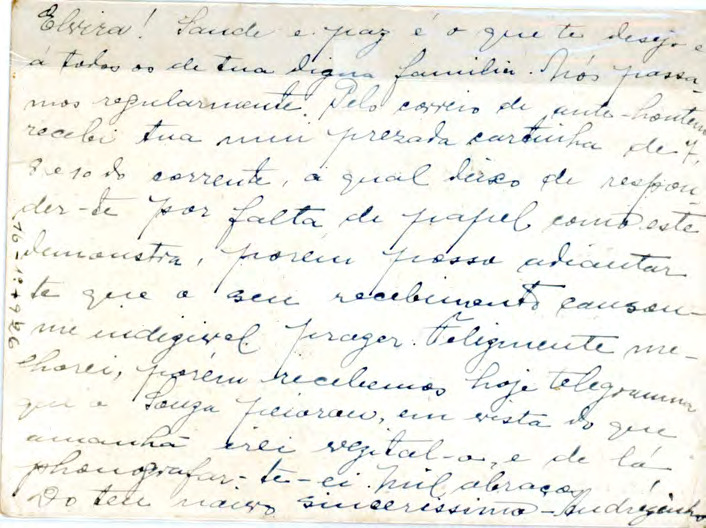 Elvira! Saude e paz é o que te desejo e
á todos os de tua digna familia. Nós passa-
mos regularmente. Pelo correio de ante-hontem
recebi tua mui prezada cartinha de 7,
9 e 10 do corrente, a qual deixo de respon-
der-te por falta de papel como este
demonstra, porém posso adiantar
te que o seu recebimento causou-
me indizivel prazer. Felizmente me-
lhorei, porém recebemos hoje telegramma
que o Souza peiorou, em vista do que
amanhã irei vezital-o, e de lá
phonografar-te-ei. Mil abraços
Do teu noivo sincerissimo - Andrezinho
16-1º-1926